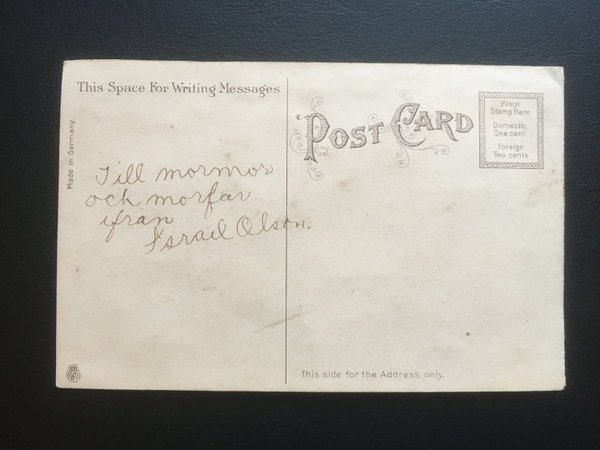 This Space For Writing Messages
Made in Germany.
Till mormor
och morfar
ifran
Israil Olson.
POST CARD
Place
Stamp Here
Domestic
One cent
Foreign
Two cents
This side for the Address only.